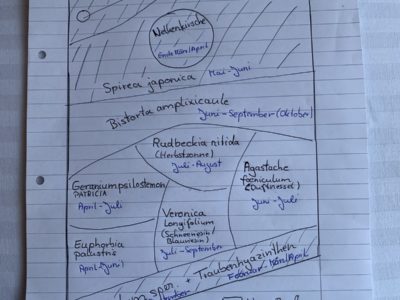 Nelkenkirsche
Ende März/April
Spirea japonica Mai-Juni
Bistorta amplixicaule
Juni-September (Oktober)
Rudbeckia nitida
(Herbstsonne)
Juli-August
Geranium psilostemon
PATRICIA
April-Juli
Agastache
foeniculum
(Duftnessel)
Juni-Juli
Veronica
Longifolium
(Schneeriesin/
Blauriesin)
Juli-September
Euphorbia
palustris
(April-Juni)
spec. + Traubenhyazinthen
Februar-März/April